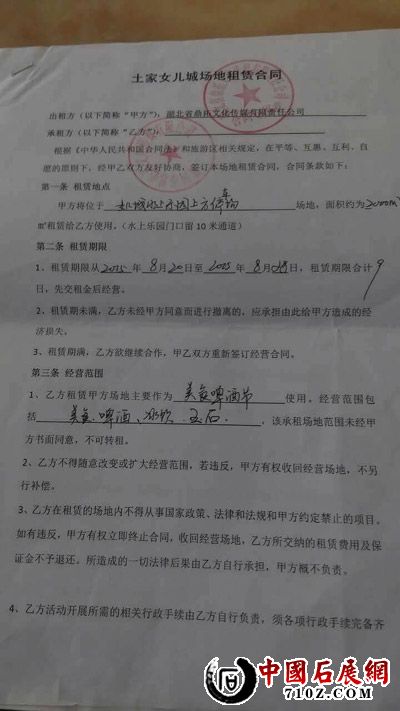 土家女儿城场地租赁合同
出租方（以下简称“甲方”）：湖北省鼎拓文化传媒有限责任公司
承租方（以下简称“乙方”）：
根据《中华人民共和国合同法》和旅游区相关规定，在平等、互惠、互利、自
愿的原则下，经甲乙双方友好协商，签订本场地租赁合同，合同条款如下：
第一条 租赁地点
甲方将位于 女儿城水上乐园上方停车场 场地，面积约为2000m²
㎡租赁给乙方使用。（水上乐园门口留 10 米通道）
第二条 租赁期限
1、租赁期限从2015 年 8 月 20 日至 2015 年 8 月 28 日，租赁期限合计 9
日，先交租金后经营。
2、租赁期未满，乙方未经甲方同意而进行撤离的，应承担由此给甲方造成的经
济损失。
3、租赁期满，乙方欲继续合作，甲乙双方重新签订经营合同。
第三条 经营范围
1、乙方租赁甲方场地主要作为 美食啤酒节 使用。经营范围包
括 美食、啤酒、冰饮、玉石 ，该承租场地范围未经甲
方书面同意，不可转租。
2、乙方不得随意改变或扩大经营范围，若违反，甲方有权收回经营场地，不另
行补偿。
3、乙方在租赁的场地内不得从事国家政策、法律和法规和甲方约定禁止的项目。
如有违反，甲方有权立即终止合同，收回经营场地，乙方所交纳的租赁费用及保
证金不予退还。所造成的一切法律后果由乙方自行承担，甲方概不负责。
4、乙方活动开展所需的相关行政手续由乙方自行负责，须各项行政手续完备齐
中國石展網
7102.COM